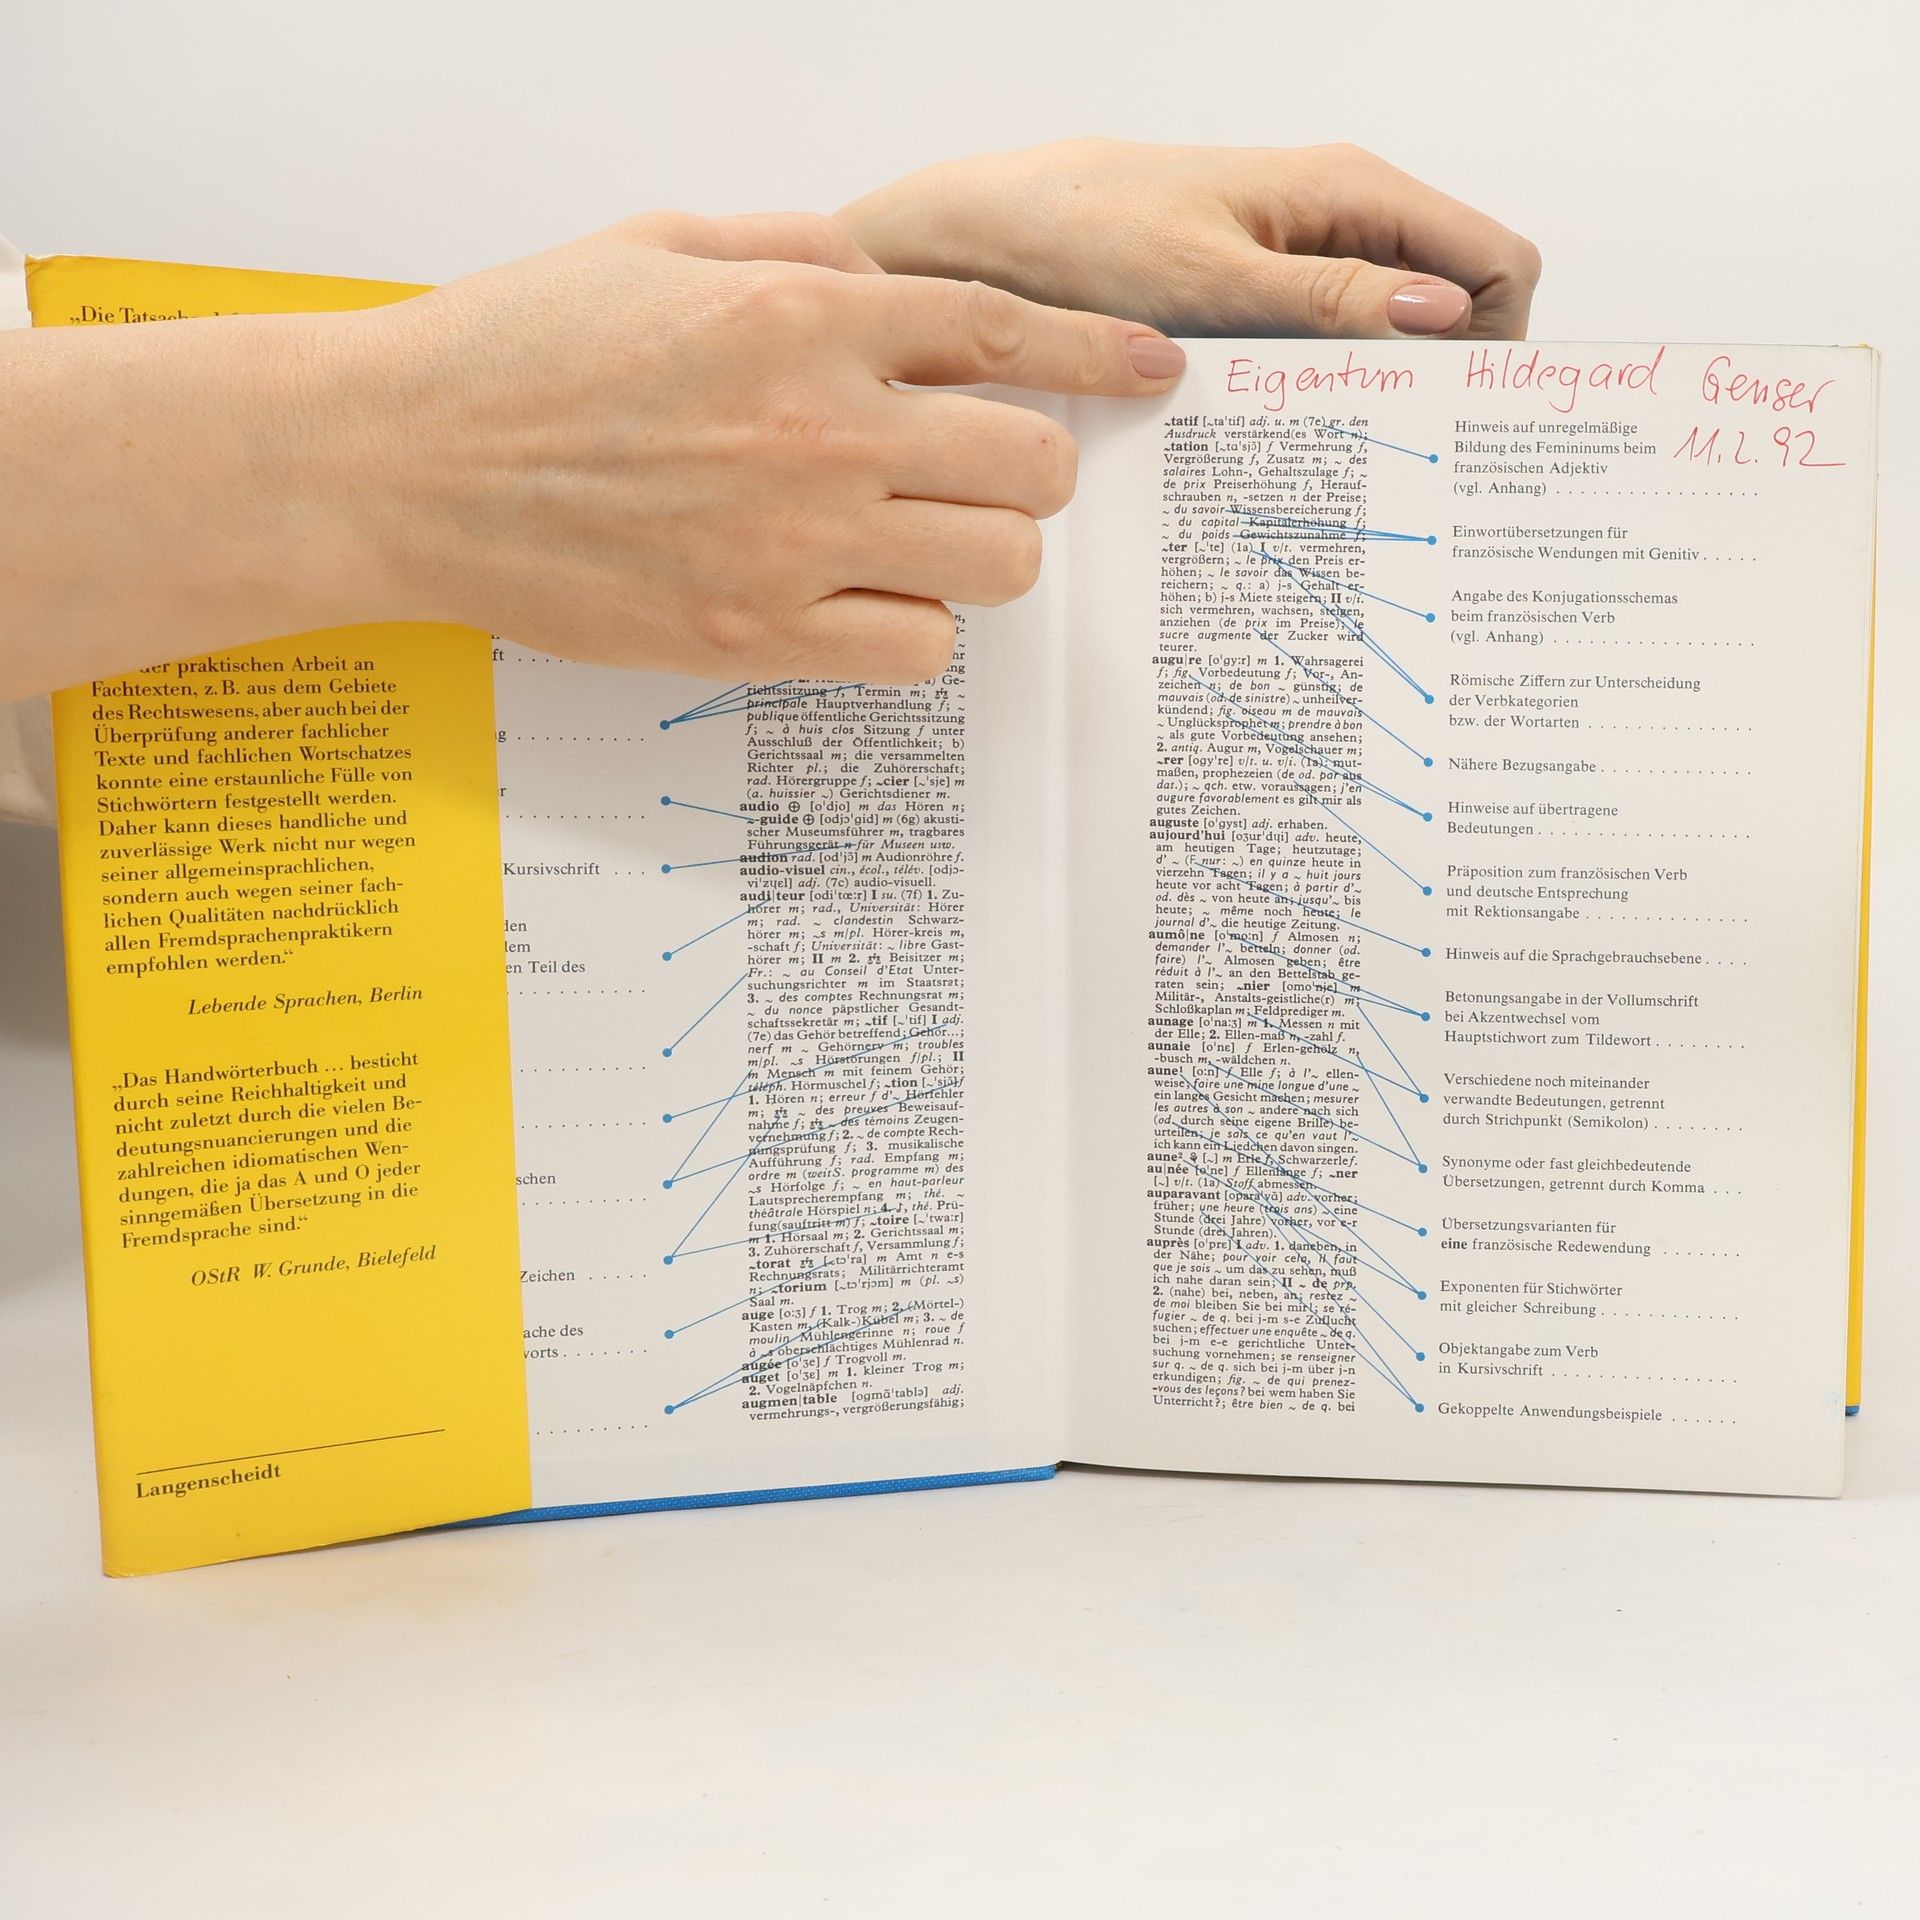 „Die
der praktischen Arbeit an
Fachtexten, z. B. aus dem Gebiete
des Rechtswesens, aber auch bei der
Überprüfung anderer fachlicher
Texte und fachlichen Wortschatzes
konnte eine erstaunliche Fülle von
Stichwörtern festgestellt werden.
Daher kann dieses handliche und
zuverlässige Werk nicht nur wegen
seiner allgemeinsprachlichen,
sondern auch wegen seiner fach-
lichen Qualitäten nachdrücklich
allen Fremdsprachenpraktikern
empfohlen werden.“
Lebende Sprachen, Berlin
„Das Handwörterbuch ... besticht
durch seine Reichhaltigkeit und
nicht zuletzt durch die vielen Be-
deutungsnuancierungen und die
zahlreichen idiomatischen Wen-
dungen, die ja das A und O jeder
sinngemäßen Übersetzung in die
Fremdsprache sind.“
OStR W. Grunde, Bielefeld
Langenscheidt
Kursivschrift . . .
en Teil des
Zeichen . . . . .
ache des
richtssitzung f, Termin m; ~
principale Hauptverhandlung f; ~
publique öffentliche Gerichtssitzung
f; ~ à huis clos Sitzung f unter
Ausschluß der Öffentlichkeit; b)
Gerichtssaal m; die versammelten
Richter pl.; die Zuhörerschaft;
rad. Hörergruppe f; ~cier [~'sje] m
(a. huissier ~) Gerichtsdiener m.
audio ⊕ [o'djo] m das Hören n;
~-guide ⊕ [odjɔ'gid] m (6g) akusti-
scher Museumsführer m, tragbares
Führungsgerät n für Museen usw.
audion rad. [od'jɔ̃] m Audionröhre f.
audio-visuel cin., écol., télév. [odjɔ-
vi'zɥɛl] adj. (7c) audio-visuell.
audi|teur [odi'tœ:r] I su. (7f) 1. Zu-
hörer m; rad., Universität: Hörer
m; rad. ~ clandestin Schwarz-
hörer m; ~s m/pl. Hörer-kreis m,
-schaft f; Universität: ~ libre Gast-
hörer m; II m 2. Beisitzer m;
Fr.: ~ au Conseil d'Etat Unter-
suchungsrichter m im Staatsrat;
3. ~ des comptes Rechnungsrat m;
~ du nonce päpstlicher Gesandt-
schaftssekretär m; ~tif [~'tif] I adj.
(7e) das Gehör betreffend; Gehör...;
nerf m ~ Gehörnerv m; troubles
m/pl. ~s Hörstörungen f/pl.; II
m Mensch m mit feinem Gehör;
téléph. Hörmuschel f; ~tion [~'sjɔ̃] f
1. Hören n; erreur f d'~ Hörfehler
m; ~ des preuves Beweisauf-
nahme f; ~ des témoins Zeugen-
vernehmung f; 2. ~ de compte Rech-
nungsprüfung f; 3. musikalische
Aufführung f; rad. Empfang m;
ordre m (weitS. programme m) des
~s Hörfolge f; ~ en haut-parleur
Lautsprecherempfang m; thé. ~
théâtrale Hörspiel n; 4. ♪, thé. Prü-
fung(sauftritt m) f; ~toire [~'twa:r]
m 1. Hörsaal m; 2. Gerichtssaal m;
3. Zuhörerschaft f, Versammlung f;
~torat [~tɔ'ra] m Amt n e-s
Rechnungsrats; Militärrichteramt
n; ~torium [~tɔ'rjɔm] m (pl. ~s)
Saal m.
auge [o:ʒ] f 1. Trog m; 2. (Mörtel-)
Kasten m, (Kalk-)Kübel m; 3. ~ de
moulin Mühlengerinne n; roue f
à ~s oberschlächtiges Mühlenrad n.
augée [o'ʒe] f Trogvoll m.
auget [o'ʒɛ] m 1. kleiner Trog m;
2. Vogelnäpfchen n.
augmen|table [ogmɑ̃'tablə] adj.
vermehrungs-, vergrößerungsfähig;
Eigentum Hildegard Genser
11. 2. 92
~tatif [~ta'tif] adj. u. m (7e) gr. den
Ausdruck verstärkend(es Wort n);
~tation [~tɑ'sjɔ̃] f Vermehrung f,
Vergrößerung f, Zusatz m; ~ des
salaires Lohn-, Gehaltszulage f; ~
de prix Preiserhöhung f, Herauf-
schrauben n, -setzen n der Preise;
~ du savoir Wissensbereicherung f;
~ du capital Kapitalerhöhung f;
~ du poids Gewichtszunahme f;
~ter [~'te] (1a) I v/t. vermehren,
vergrößern; ~ le prix den Preis er-
höhen; ~ le savoir das Wissen be-
reichern; ~ q.: a) j-s Gehalt er-
höhen; b) j-s Miete steigern; II v/i.
sich vermehren, wachsen, steigen,
anziehen (de prix im Preise); le
sucre augmente der Zucker wird
teurer.
augu|re [o'gy:r] m 1. Wahrsagerei
f; fig. Vorbedeutung f; Vor-, An-
zeichen n; de bon ~ günstig; de
mauvais (od. de sinistre) ~ unheilver-
kündend; fig. oiseau m de mauvais
~ Unglücksprophet m; prendre à bon
~ als gute Vorbedeutung ansehen;
2. antiq. Augur m, Vogelschauer m;
~rer [ogy're] v/t. u. v/i. (1a): mut-
maßen, prophezeien (de od. par aus
dat.); ~ qch. etw. voraussagen; j'en
augure favorablement es gilt mir als
gutes Zeichen.
auguste [o'gyst] adj. erhaben.
aujourd'hui [oʒur'dɥi] adv. heute,
am heutigen Tage; heutzutage;
d' ~ (F nur: ~) en quinze heute in
vierzehn Tagen; il y a ~ huit jours
heute vor acht Tagen; à partir d'~
od. dès ~ von heute an; jusqu'~ bis
heute; ~ même noch heute; le
journal d'~ die heutige Zeitung.
aumô|ne [o'mo:n] f Almosen n;
demander l'~ betteln; donner (od.
faire) l'~ Almosen geben; être
réduit à l'~ an den Bettelstab ge-
raten sein; ~nier [omo'nje] m
Militär-, Anstalts-geistliche(r) m;
Schloßkaplan m; Feldprediger m.
aunage [o'na:ʒ] m 1. Messen n mit
der Elle; 2. Ellen-maß n, -zahl f.
aunaie [o'nɛ] f Erlen-gehölz n,
-busch m, -wäldchen n.
aune¹ [o:n] f Elle f; à l'~ ellen-
weise; faire une mine longue d'une ~
ein langes Gesicht machen; mesurer
les autres à son ~ andere nach sich
(od. durch seine eigene Brille) be-
urteilen; je sais ce qu'en vaut l'~
ich kann ein Liedchen davon singen.
aune² ♀ [~] m Erle f, Schwarzerle f.
au|née [o'ne] f Ellenlänge f; ~ner
[~] v/t. (1a) Stoff abmessen.
auparavant [opara'vɑ̃] adv. vorher;
früher; une heure (trois ans) ~ eine
Stunde (drei Jahre) vorher, vor e-r
Stunde (drei Jahren).
auprès [o'prɛ] I adv. 1. daneben, in
der Nähe; pour voir cela, il faut
que je sois ~ um das zu sehen, muß
ich nahe daran sein; II ~ de prp.
2. (nahe) bei, neben, an; restez ~
de moi bleiben Sie bei mir!; se ré-
fugier ~ de q. bei j-m s-e Zuflucht
suchen; effectuer une enquête ~ de q.
bei j-m e-e gerichtliche Unter-
suchung vornehmen; se renseigner
sur q. ~ de q. sich bei j-m über j-n
erkundigen; fig. ~ de qui prenez-
-vous des leçons? bei wem haben Sie
Unterricht?; être bien ~ de q. bei
Hinweis auf unregelmäßige
Bildung des Femininums beim
französischen Adjektiv
(vgl. Anhang) . . . . . . . . . . . . . . . . .
Einwortübersetzungen für
französische Wendungen mit Genitiv . . . . .
Angabe des Konjugationsschemas
beim französischen Verb
(vgl. Anhang) . . . . . . . . . . . . . . . . .
Römische Ziffern zur Unterscheidung
der Verbkategorien
bzw. der Wortarten . . . . . . . . . . . . . .
Nähere Bezugsangabe . . . . . . . . . . . .
Hinweise auf übertragene
Bedeutungen . . . . . . . . . . . . . . . . . .
Präposition zum französischen Verb
und deutsche Entsprechung
mit Rektionsangabe . . . . . . . . . . . . . .
Hinweis auf die Sprachgebrauchsebene . . . .
Betonungsangabe in der Vollumschrift
bei Akzentwechsel vom
Hauptstichwort zum Tildewort . . . . . . . .
Verschiedene noch miteinander
verwandte Bedeutungen, getrennt
durch Strichpunkt (Semikolon) . . . . . . . .
Synonyme oder fast gleichbedeutende
Übersetzungen, getrennt durch Komma . . .
Übersetzungsvarianten für
eine französische Redewendung . . . . . . .
Exponenten für Stichwörter
mit gleicher Schreibung . . . . . . . . . . . .
Objektangabe zum Verb
in Kursivschrift . . . . . . . . . . . . . . . . .
Gekoppelte Anwendungsbeispiele . . . . . .